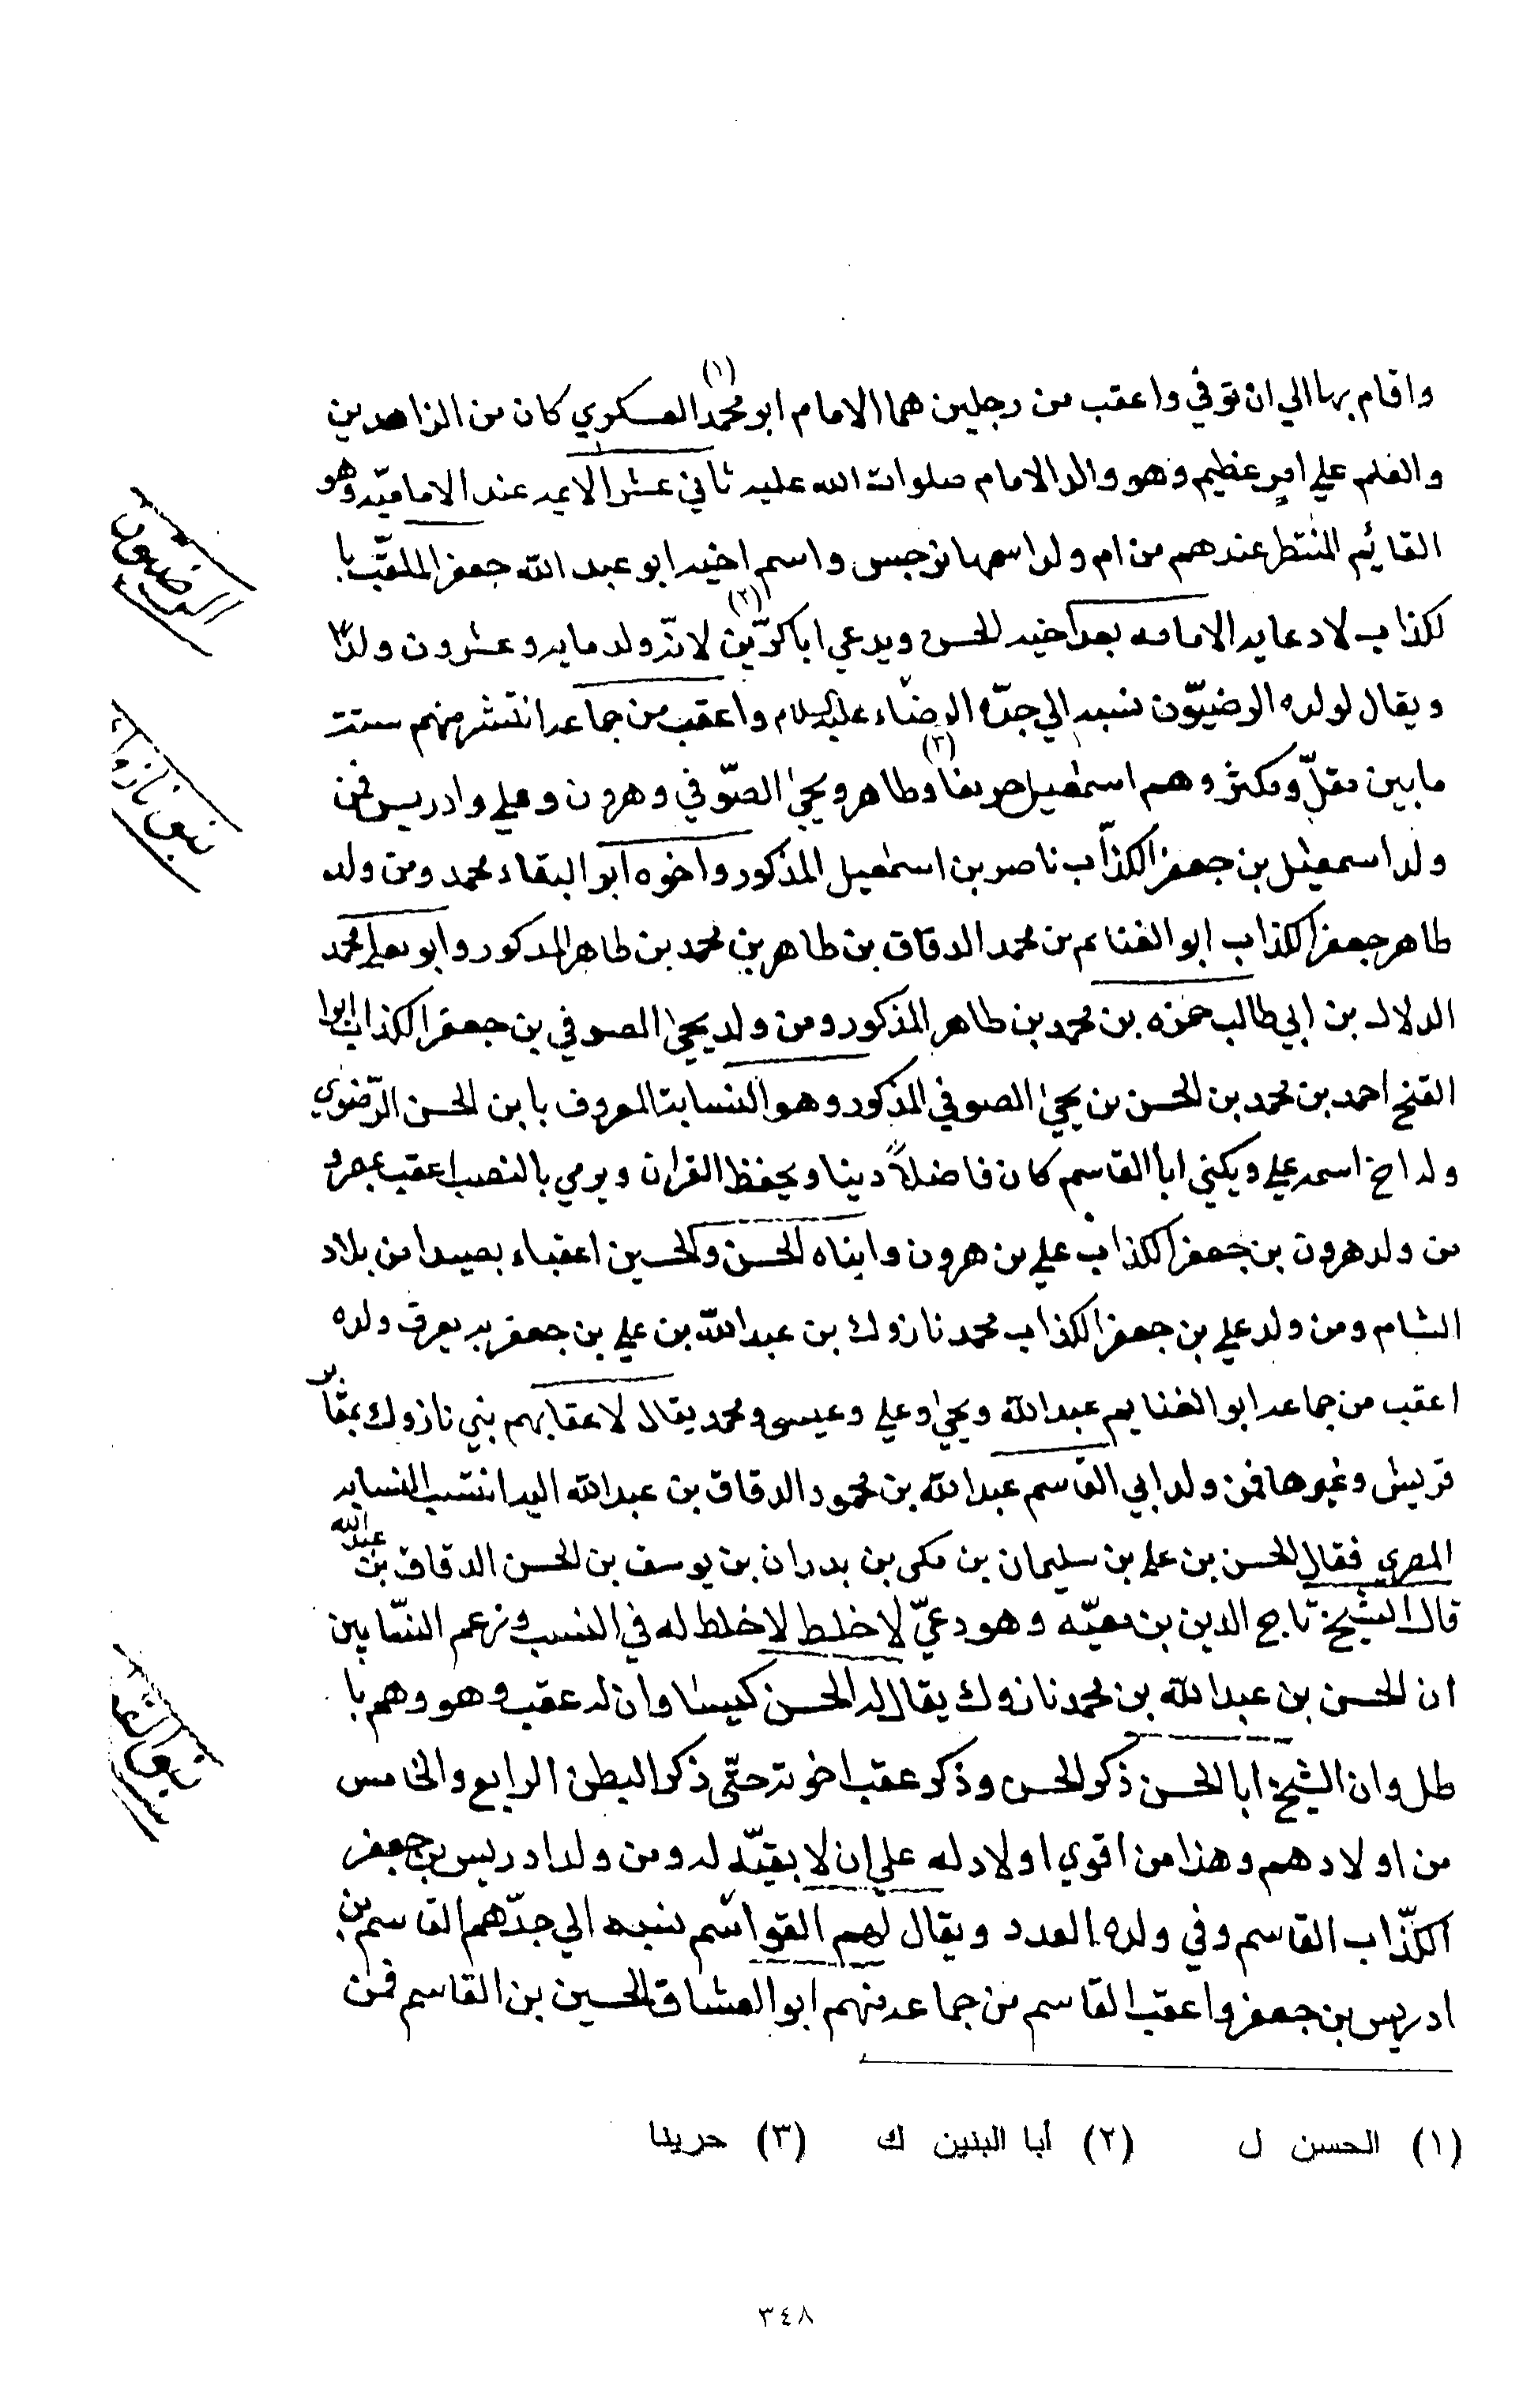 واقام بها الي ان توفي واعقب من رجلين هما الامام ابو محمد (١) العسكري كان من الزاهدين
والعلم علي امر عظيم وهو والد الامام صلوات الله عليه ثاني عشر الايمه عند الاماميّه وهو
القائيم المنتظر عندهم من ام ولد اسمها نرجس واسم اخيه ابو عبد الله جعفر الملقّب با
لكذاب لادعايه الامامه بعد اخيه الحسن ويدعي ابا كرّين (٢) لانّه ولد مايه وعشرون ولدًا
ويقال لولده الرضيّون نسبه الي جدّه الرضاء عليه السلام واعقب من جماعه انتشر منهم ستة
مابين مقلّ ومكثر وهم اسمعيل حريفا (٣) وطاهر ويحيٰ الصّوفي وهرون وعلي وادريس فمن
ولد اسمعيل بن جعفر الكذّاب ناصر بن اسمعيل المذكور واخوه ابو البقاء محمد ومن ولد
طاهر جعفر الكذاب ابو الغنايم بن محمد الدقاق بن طاهر بن محمد بن طاهر المذكور وابو يعلي محمد
الدلال بن ابي طالب حمزه بن محمد بن طاهر المذكور ومن ولد يحيٰ الصوفي بن جعفر الكذاب ابوا
الفتح احمد بن محمد بن الحسن بن يحيٰ الصوفي المذكور وهو النسابة المعروف بابن الحسن الرّضوي
وله اخ اسمه علي ويكني ابا القاسم كان فاضلاً دينا ويحفظ القران ويرمي بالنصب اعقب بمصر و
من ولد هرون بن جعفر الكذاب علي بن هرون وابناه الحسن والحسين اعقباء بصيدا من بلاد
الشام ومن ولد علي بن جعفر الكذاب محمد نازوك بن عبدالله بن علي بن جعفر به يعرف ولده
اعقب من جماعه ابو الغنايم عبدالله ويحيٰ وعلي وعيسى ومحمد يقال لاعقابهم بني نازوك بمقابر
قريش وغيرها فمن ولد ابي القاسم عبدالله بن محمود الدقاق بن عبدالله اليه انتسب النسابه
المصري فقال الحسن بن علي بن سليمان بن مكى بن بدران بن يوسف بن الحسن الدقاق بن عبدالله
قال الشيخ تاج الدين بن معيّه وهو دعيّ لاخلط لاخلط له في النسب وزعم النسّابين
ان الحسن بن عبدالله بن محمد نازوك يقال له الحسن كيسا وان له عقب وهو وهم با
طل وان الشيخ ابا الحسن ذكر الحسن وذكر عقب اخوته حتّى ذكر البطن الرابع والخامس
من اولادهم وهذا من اقوي اولادله علي ان لا بقيّه له ومن ولد ادريس بن جعفر
الكذّاب القاسم وفي ولده العدد ويقال لهم القواسم نسبه الي جدّهم القاسم بن
ادريس بن جعفر واعقب القاسم من جماعه منهم ابو العشاق الحسين بن القاسم فمن
الرضويون
بنو نازوك
(١) الحسن ل (٢) أبا البنين ك (٣) حريفا
٣٤٨